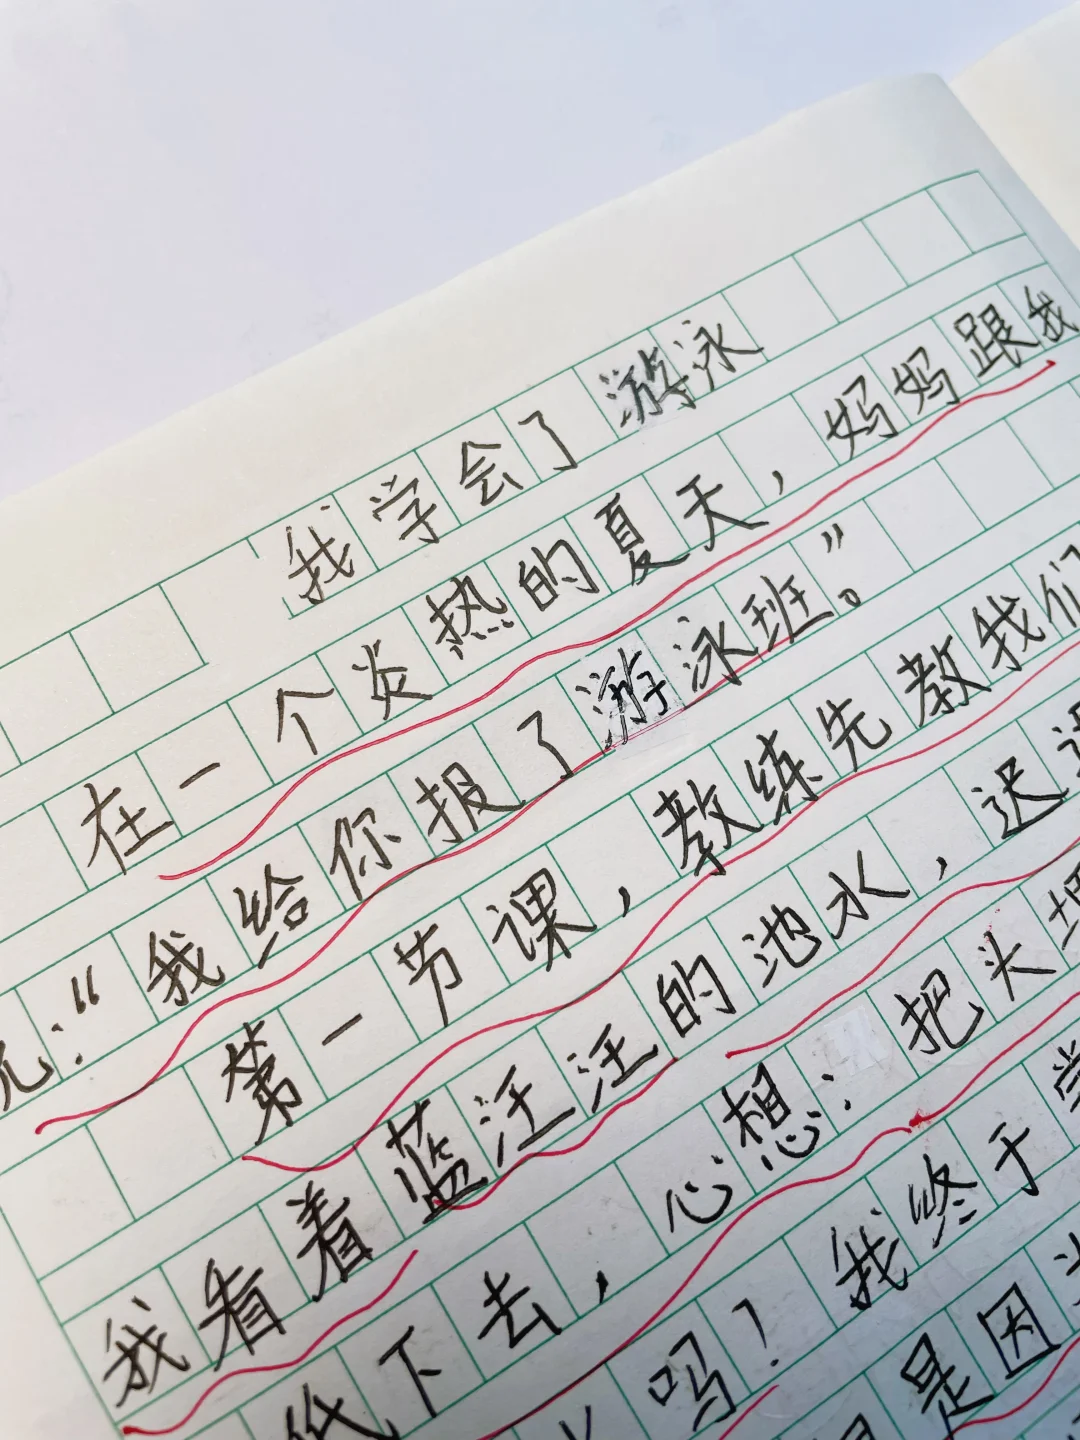 我学会了游泳
在一个炎热的夏天，妈妈跟我
：“我给你报了游泳班”。
第一节课，教练先教我们
我看着蓝汪汪的池水，迟
下去，心想：把头埋
吗！我终于学
是因为